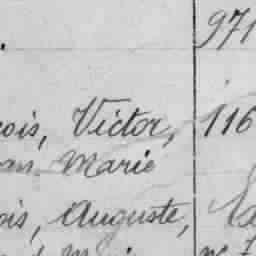 971
ois, Victor, 116
an Marie
ois, Auguste,